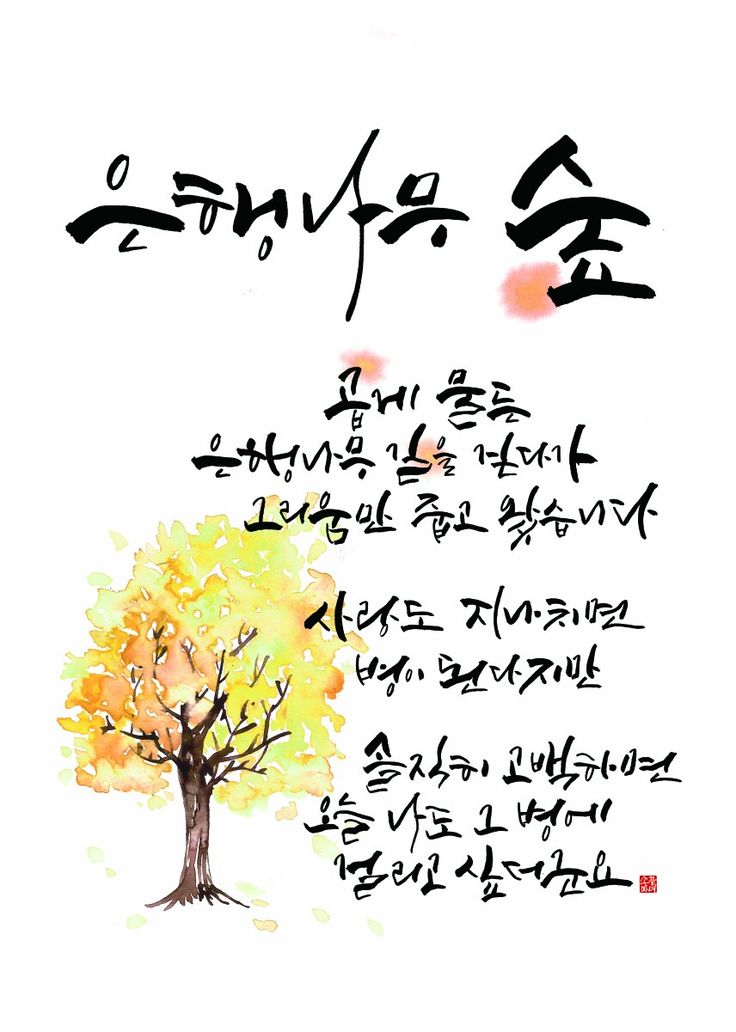 은행나무 숲
곱게 물든
은행나무 길을 걷다가
그리움만 줍고 왔습니다
사랑도 지나치면
병이 된다지만
솔직히 고백하면
오늘 나도 그 병에
걸리고 싶더군요